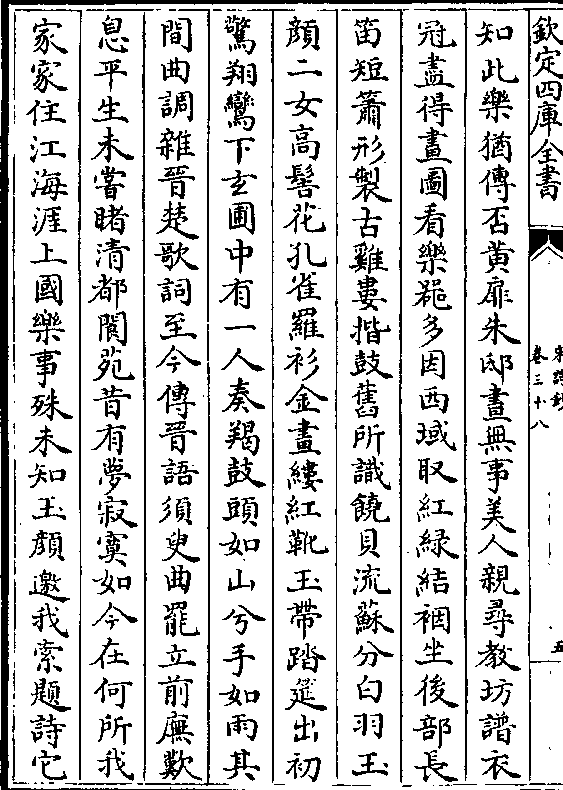 欽定四庫全書
宋詩鈔
卷三十八
五
知此樂猶傳否黄扉朱邸晝無事美人親尋教坊譜衣
冠盡得畫圖看樂器多因西域取紅緑結裀坐後部長
笛短簫形製古雞婁揩鼓舊所識饒貝流蘇分白羽玉
顔二女高髻花孔雀羅衫金畫縷紅靴玉帶踏筵出初
驚翔鸞下玄圃中有一人奏羯鼓頭如山兮手如雨其
間曲調雜晉楚歌詞至今傳晉語須臾曲罷立前廡歎
息平生未嘗睹清都閬苑昔有夢寂寞如今在何所我
家家住江海涯上國樂事殊未知玉顔邀我索題詩它